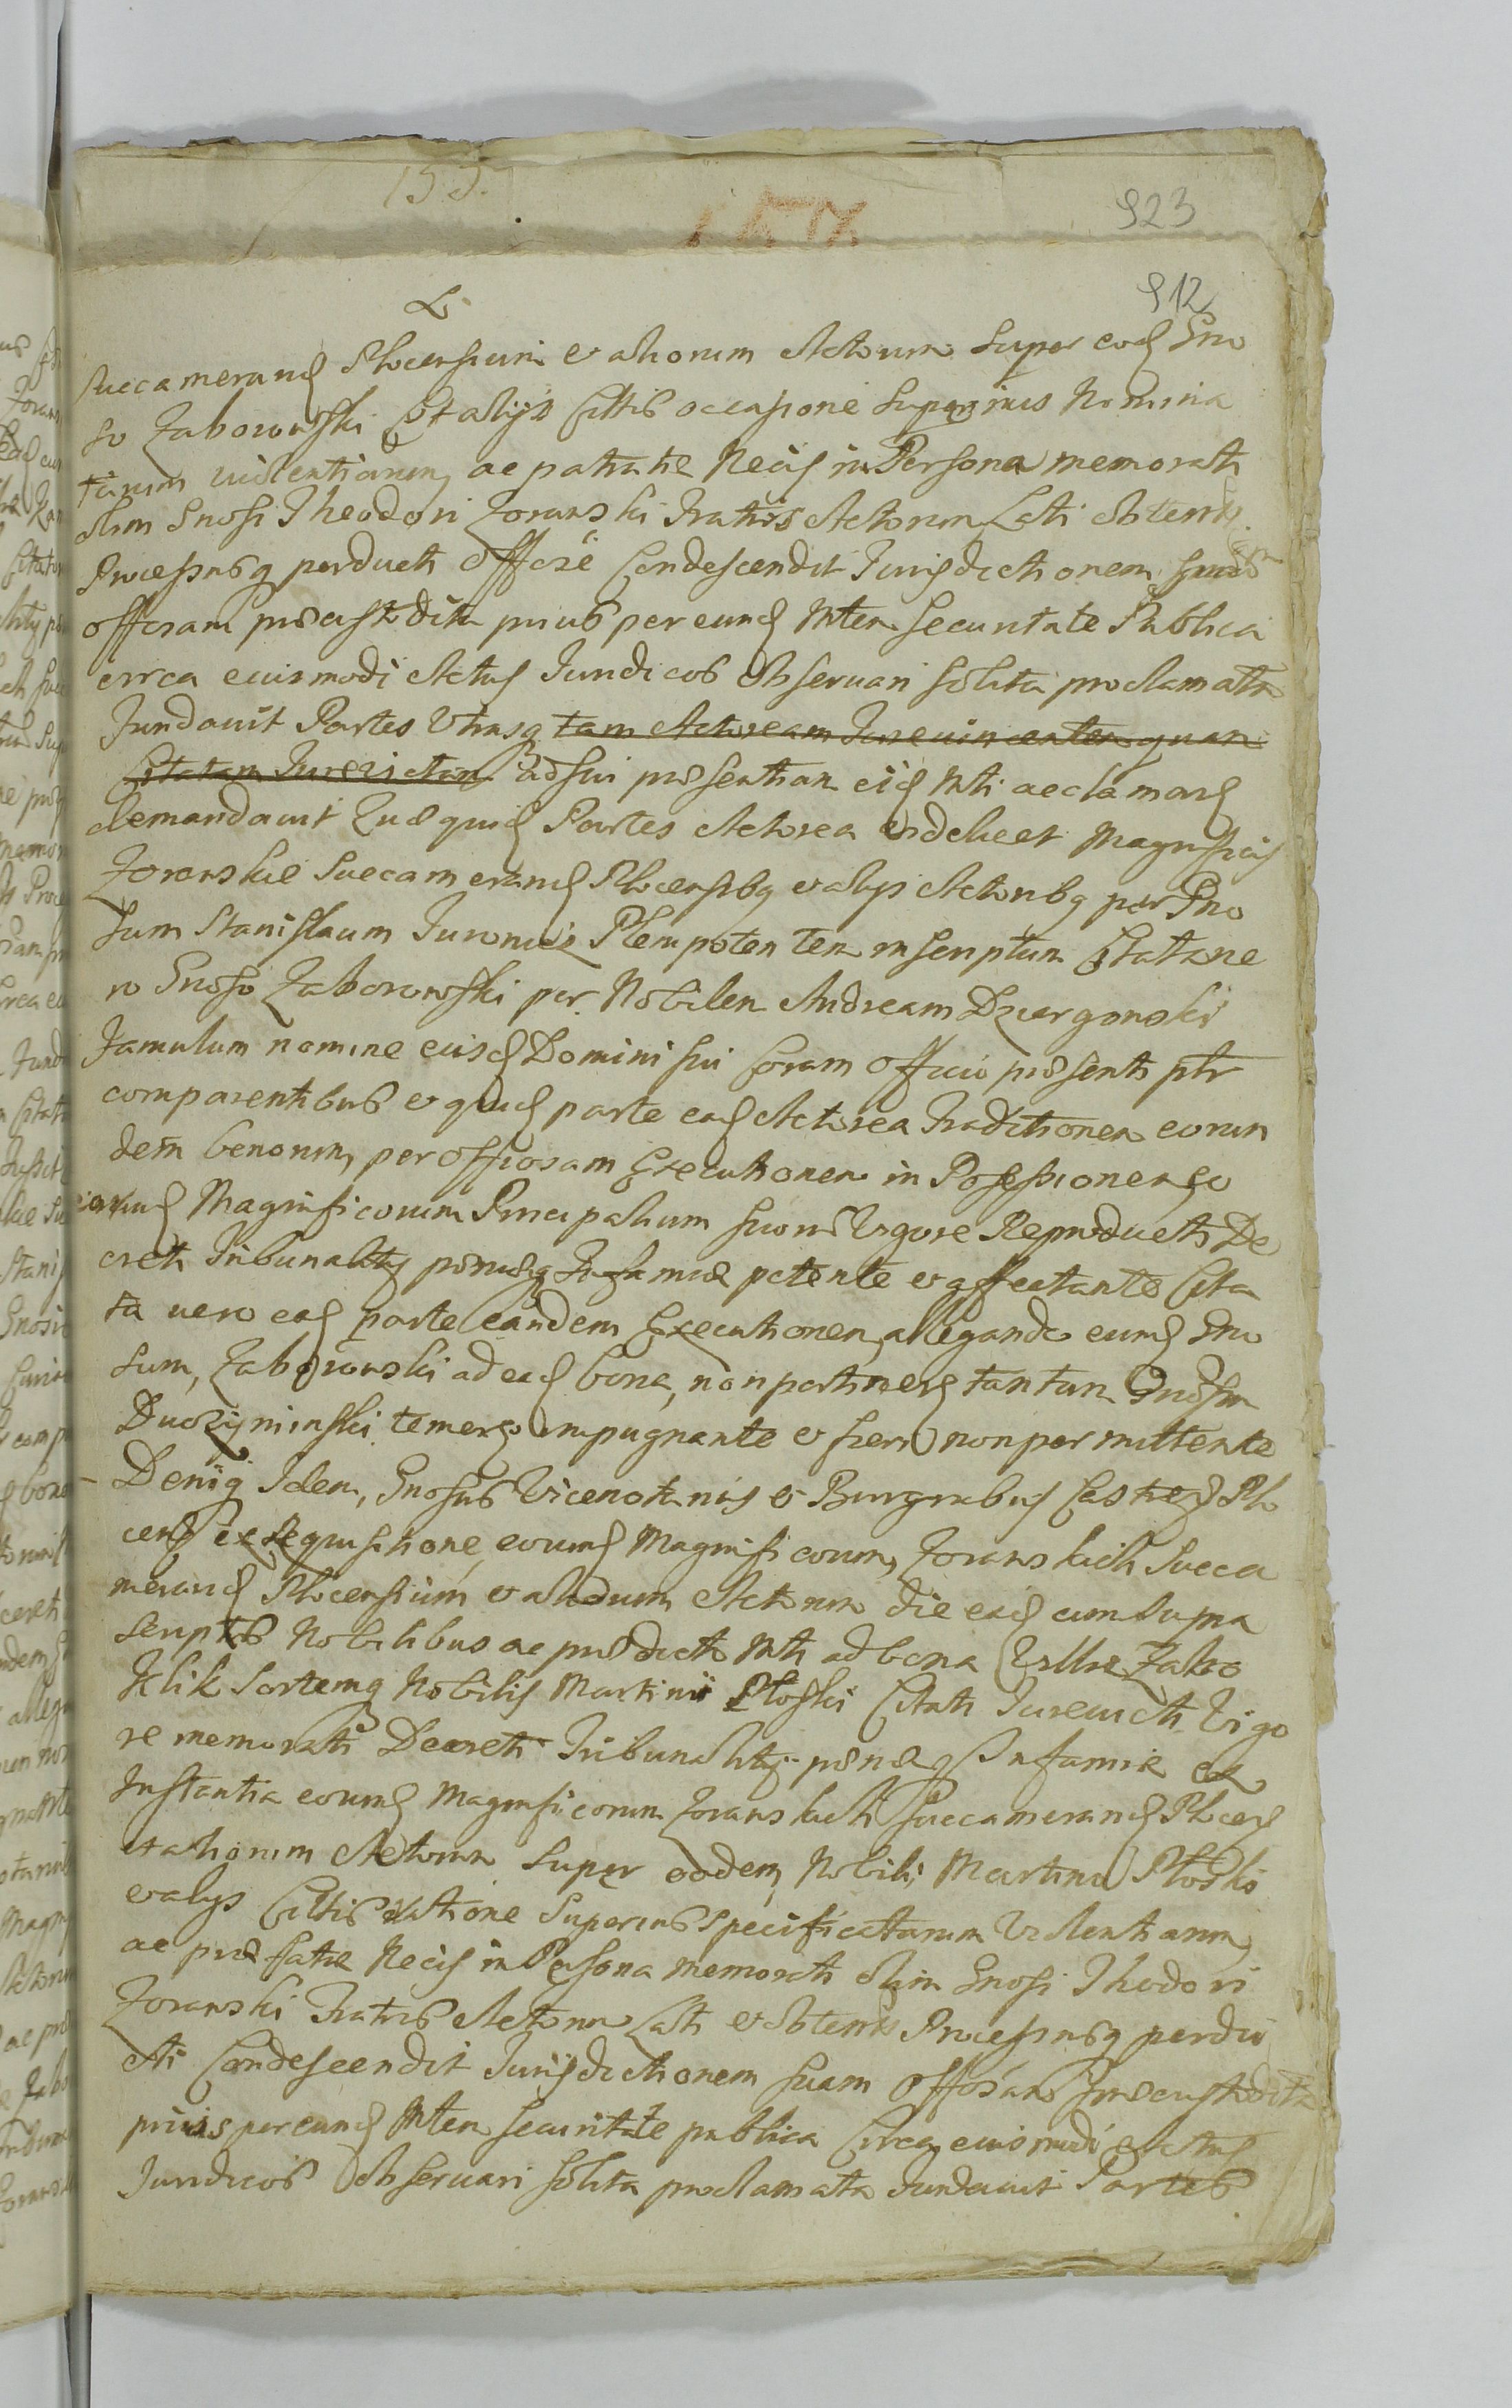 155.
923
912
Succamerarid Plocensium et aliorum Actorum super eod Gno
so Zaborowski et alijs Cittis occasione superius Nomina
tarum violentiarum, ac patratae Necis in Persona memorati
olim Gnosi Theodori Zoranski Fratris Actorum Lati Obtenti
Processusq perducti Offose Condescendit Jurisdictionem suam
offosam praecustodita prius per eund Mten securitate Publica
circa eiusmodi Actus Juridicos Observari solita proclamata
Fundavit Partes Utrasq tam Actoream Jurevincentem quam
Citatam Jurevictam ad sui praesentiam eid Mti acclamare
demandavit Quaequid Partes Actorea videlicet Magnificis
Zoranskie Succamerarid Plocensibq et alijs Actoribq per Gno
sum Stanislaum Plenipotentem inscriptum Citata ve
ro Gnoso Zaborowski per Nobilem Andream Dziergonski
Famulum nomine eiusd Domini sui Coram Officio praesenti ptr
comparentibus et quid parte ead Actorea Traditionem eorun
dem bonorum, per Offiosam Executionem in Possessionem
eorund Magnificorum Principalium suorum Vigore Reproducti De
creti Tribunalitij poenaeq Infamiae petente et affectante Cita
ta vero ead parte eandem Executionem, allegando eund Gno
sum, Zaborowski ad ead bona, non pertinere tantum Gnosum
temere impugnante et fieri non permittente
Deniq Idem, Gnosus Vicenotarius et Burgrabius Castren Plo
cen ex requisitione, eorund Magnificorum, Zoranskich Succa
merarid Plocensium et aliorum Actorum die ead cum supra
scriptis Nobilibus ac praedicto Mti ad bona Villae Zabo
Klik Sortemq Nobilis Martini Ploski Citati Jurevicti Vigo
re memorati Decreti Tribunalitij poenaeq Infamiae ex
Instantia eorund Magnificorum Zoranskich Succamerarid Plocen
et aliorum Actorum super eodem Nobili Martino Ploski
et alijs Cittis ratione Superius specificatarum Violentiarum,
ac praefatae Necis in Persona memorati olim Gnosi Thodori
Zoranski Fratris Actorum Lati et Obtenti Processusq perdu
cti Condescendit Jurisdictionem suam Offosam praecustodita
prius per eund Mten securitate publica Circa eiusmodi Actus
Juridicos Observari solita proclamata Fundavit Partes